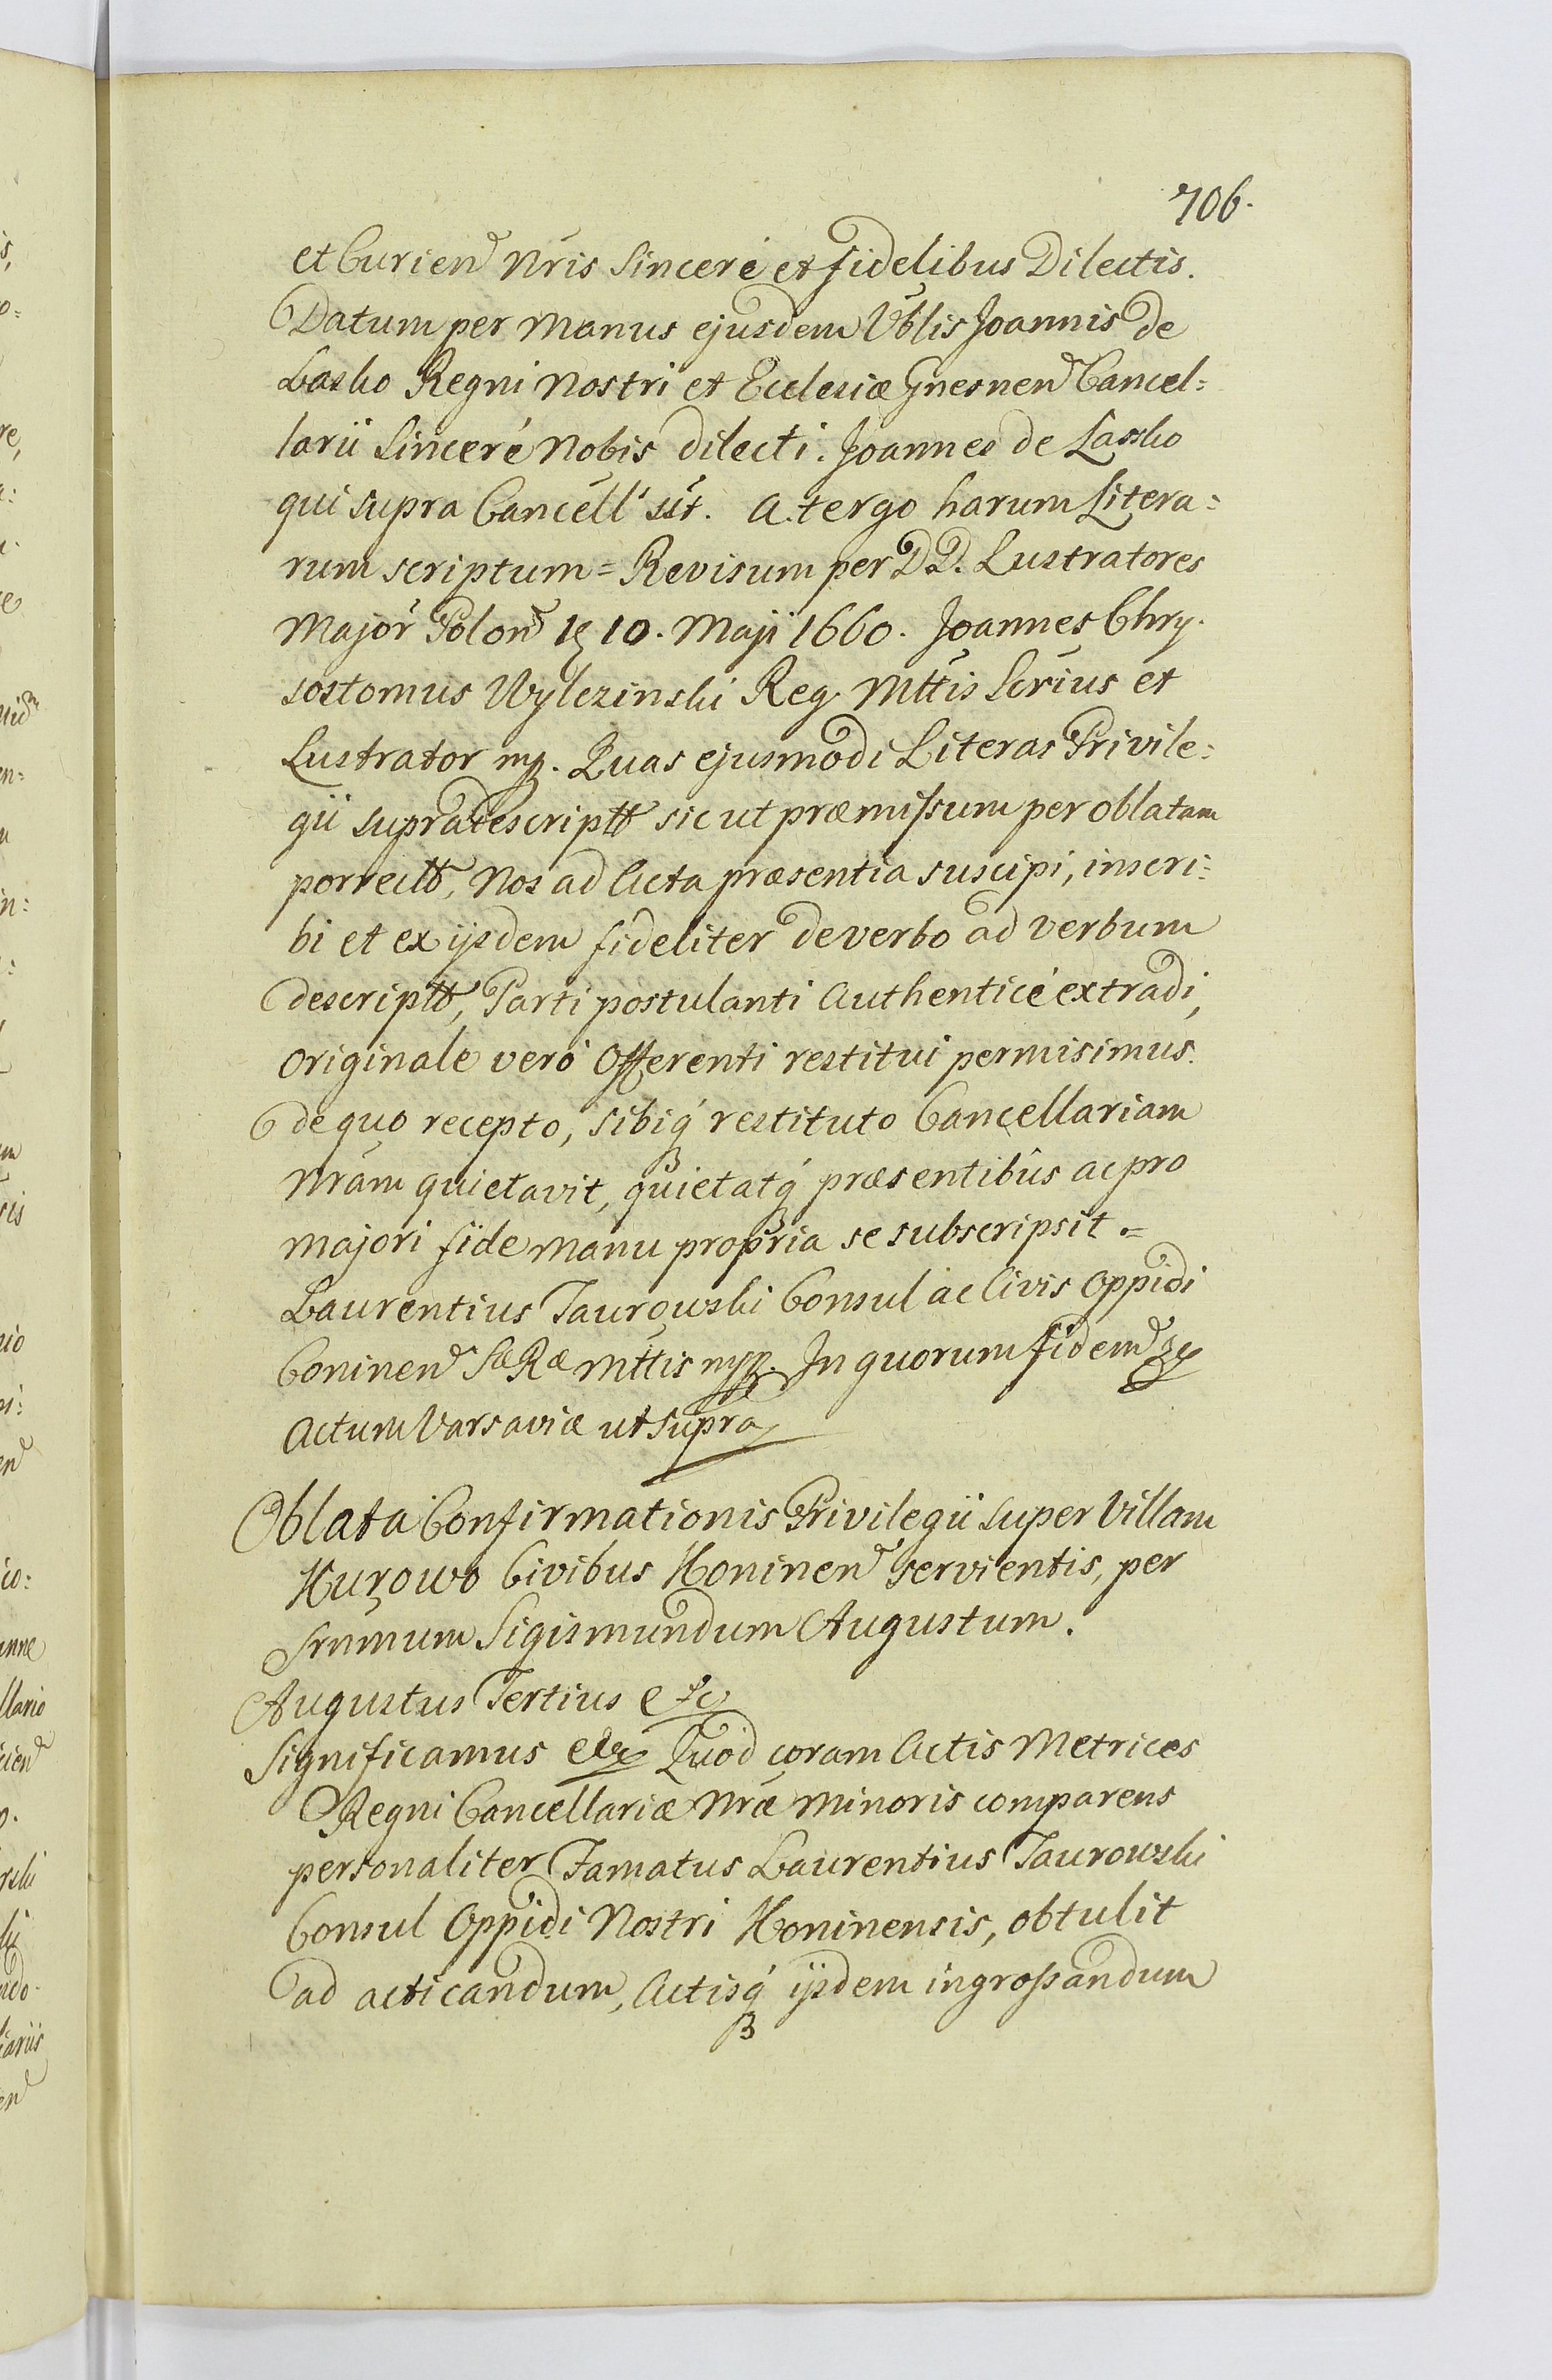 706.
et Curien Nris sinceré et fidelibus Dilectis.
Datum per Manus ejusdem Vblis Joannis de
Lasko Regni Nostri et Ecclesiæ Gnesnen Cancel=
larii Sinceré Nobis dilecti. Joannes de Lasko
qui supra Cancell' sst. A tergo harum Litera=
rum scriptum = Revisum per DD. Lustratores
Major Polon 10. Maji 1660. Joannes Chry.
sostomus Wylezinski Reg. Mttis Scrius et
Lustrator mp. Quas ejusmodi Literas Privile=
gii supradescriptt sicut præmissum per oblatam
porrectt, Nos ad Acta præsentia suscipi, inscri=
bi et ex ijsdem fideliter de verbo ad verbum
descriptt, Parti postulanti Authenticé extradi,
Originale veró Offerenti restitui permisimus.
de quo recepto, sibiq́ restituto Cancellariam
Nram quietavit, quietatq́ præsentibus ac pro
majori fide manu propria se subscripsit =
Laurentius Taurowski Consul ac Civis Oppidi
Coninen Sæ Ræ Mttis mpp. In quorum fidem &c
Actum Varsaviæ ut supra
Oblata Confirmationis Privilegii super Villam
Kurowo Civibus Koninen servientis, per
Srnmum Sigismundum Augustum.
Augustus Tertius etc
Significamus etc Quod coram Actis Metrices
Regni Cancellariæ Nræ Minoris comparens
personaliter Famatus Laurentius Taurowski
Consul Oppidi Nostri Koninensis, obtulit
ad acticandum, Actisq́ ijsdem ingrossandum